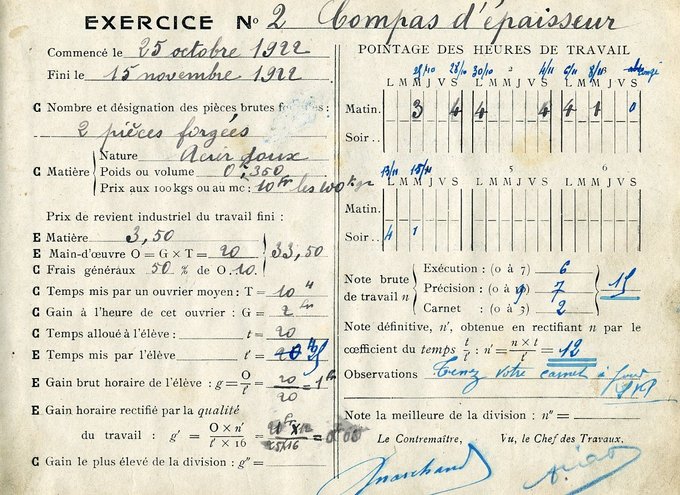 EXERCICE No 2 Compas d'épaisseur
Commencé le 25 octobre 1922
Fini le 15 novembre 1922
C Nombre et désignation des pièces brutes :
2 pièces forgées
C Matière
Nature Acier doux
Poids ou volume 0k,350
Prix aux 100 kgs ou au mc : 10fr les 100 kgr
Prix de revient industriel du travail fini :
E Matière 3,50
E Main-d'œuvre O = G × T = 20
C Frais généraux 50 % de O. 10.
33,50
C Temps mis par un ouvrier moyen : T = 10 H
C Gain à l'heure de cet ouvrier : G = 2 fr
C Temps alloué à l'élève : t = 20
E Temps mis par l'élève t' = 25
E Gain brut horaire de l'élève : g = O/t' = 20/20 = 1 fr
E Gain horaire rectifié par la qualité
du travail : g' = O × n'/t' × 16 =
C Gain le plus élevé de la division : g" =
POINTAGE DES HEURES DE TRAVAIL
25/10 28/10 30/10 2 4/11 6/11 8/11
L M M J V S L M M J V S L M M J V S
Matin. 3 4 4 4 4 1 0
Soir . .
13/11 15/11 5 6
L M M J V S L M M J V S L M M J V S
Matin.
Soir . . 4 1
Note brute de travail n
Exécution : (0 à 7) 6
Précision : (0 à 9) 7
Carnet : (0 à 3) 2
15
Note définitive, n', obtenue en rectifiant n par le
cœfficient du temps t/t' : n' = n × t/t' = 12
Observations Tenez votre carnet à jour
Note la meilleure de la division : n" =
Le Contremaître, Vu, le Chef des Travaux.
Marchand